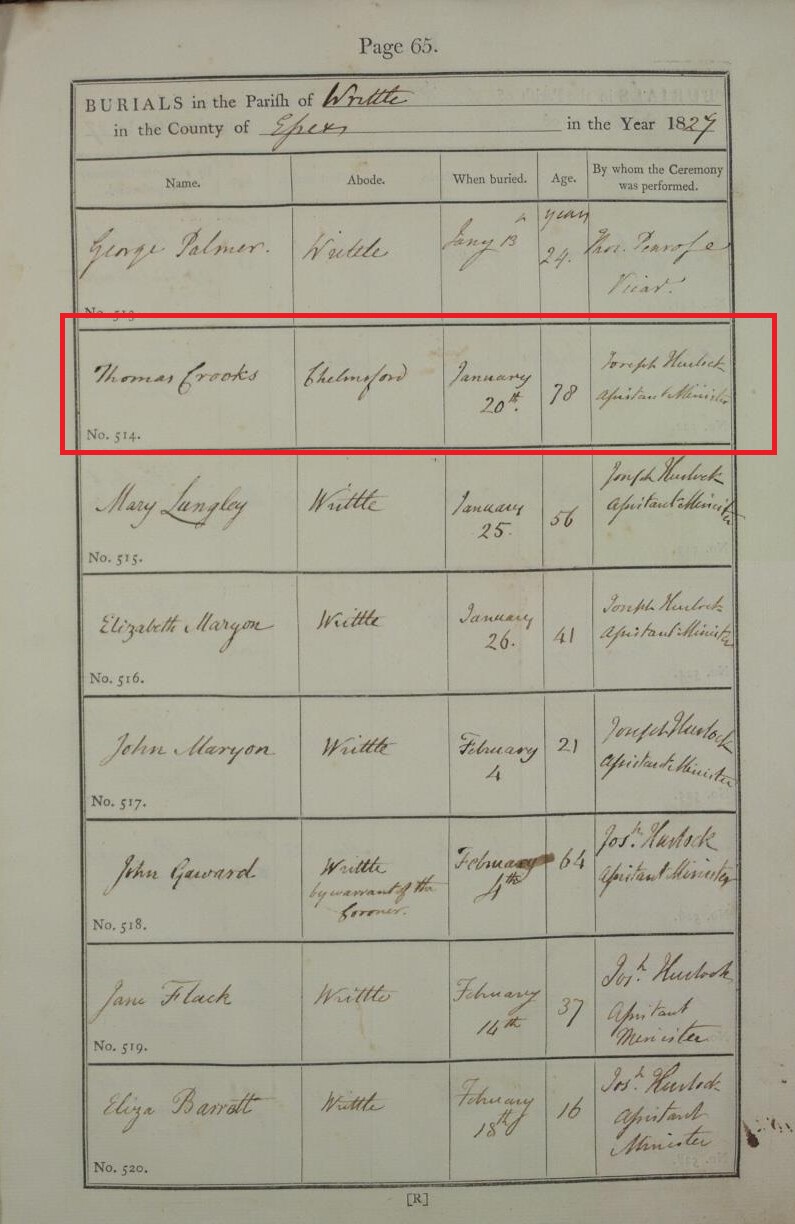 Page 65.
BURIALS in the Pariſh of Writtle
in the County of Eſsex in the Year 1827
Name. Abode. When buried. Age. By whom the Ceremony
was performed.
George Palmer. Writtle Jany 13th years
24. Thos. Penrose
Vicar.
No. 513
Thomas Crooks Chelmsford January
20th. 78 Joseph Hurlock
Aſsistant Minister
No. 514.
Mary Langley Writtle January
25. 56 Joseph Hurlock
Aſsistant Minister
No. 515.
Elizabeth Maryon Writtle January
26. 41 Joseph Hurlock
Aſsistant Minister
No. 516.
John Maryon Writtle February
4 21 Joseph Hurlock
Aſsistant Minister
No. 517.
John Gaward Writtle
by warrant of the
Coroner. February
4th 64 Josh. Hurlock
Aſsistant Minister
No. 518.
Jane Flack Writtle February
14th 37 Josh. Hurlock
Aſsistant
Minister
No. 519.
Eliza Barratt Writtle February
18th 16 Josh. Hurlock
Aſsistant
Minister
No. 520.
[R]